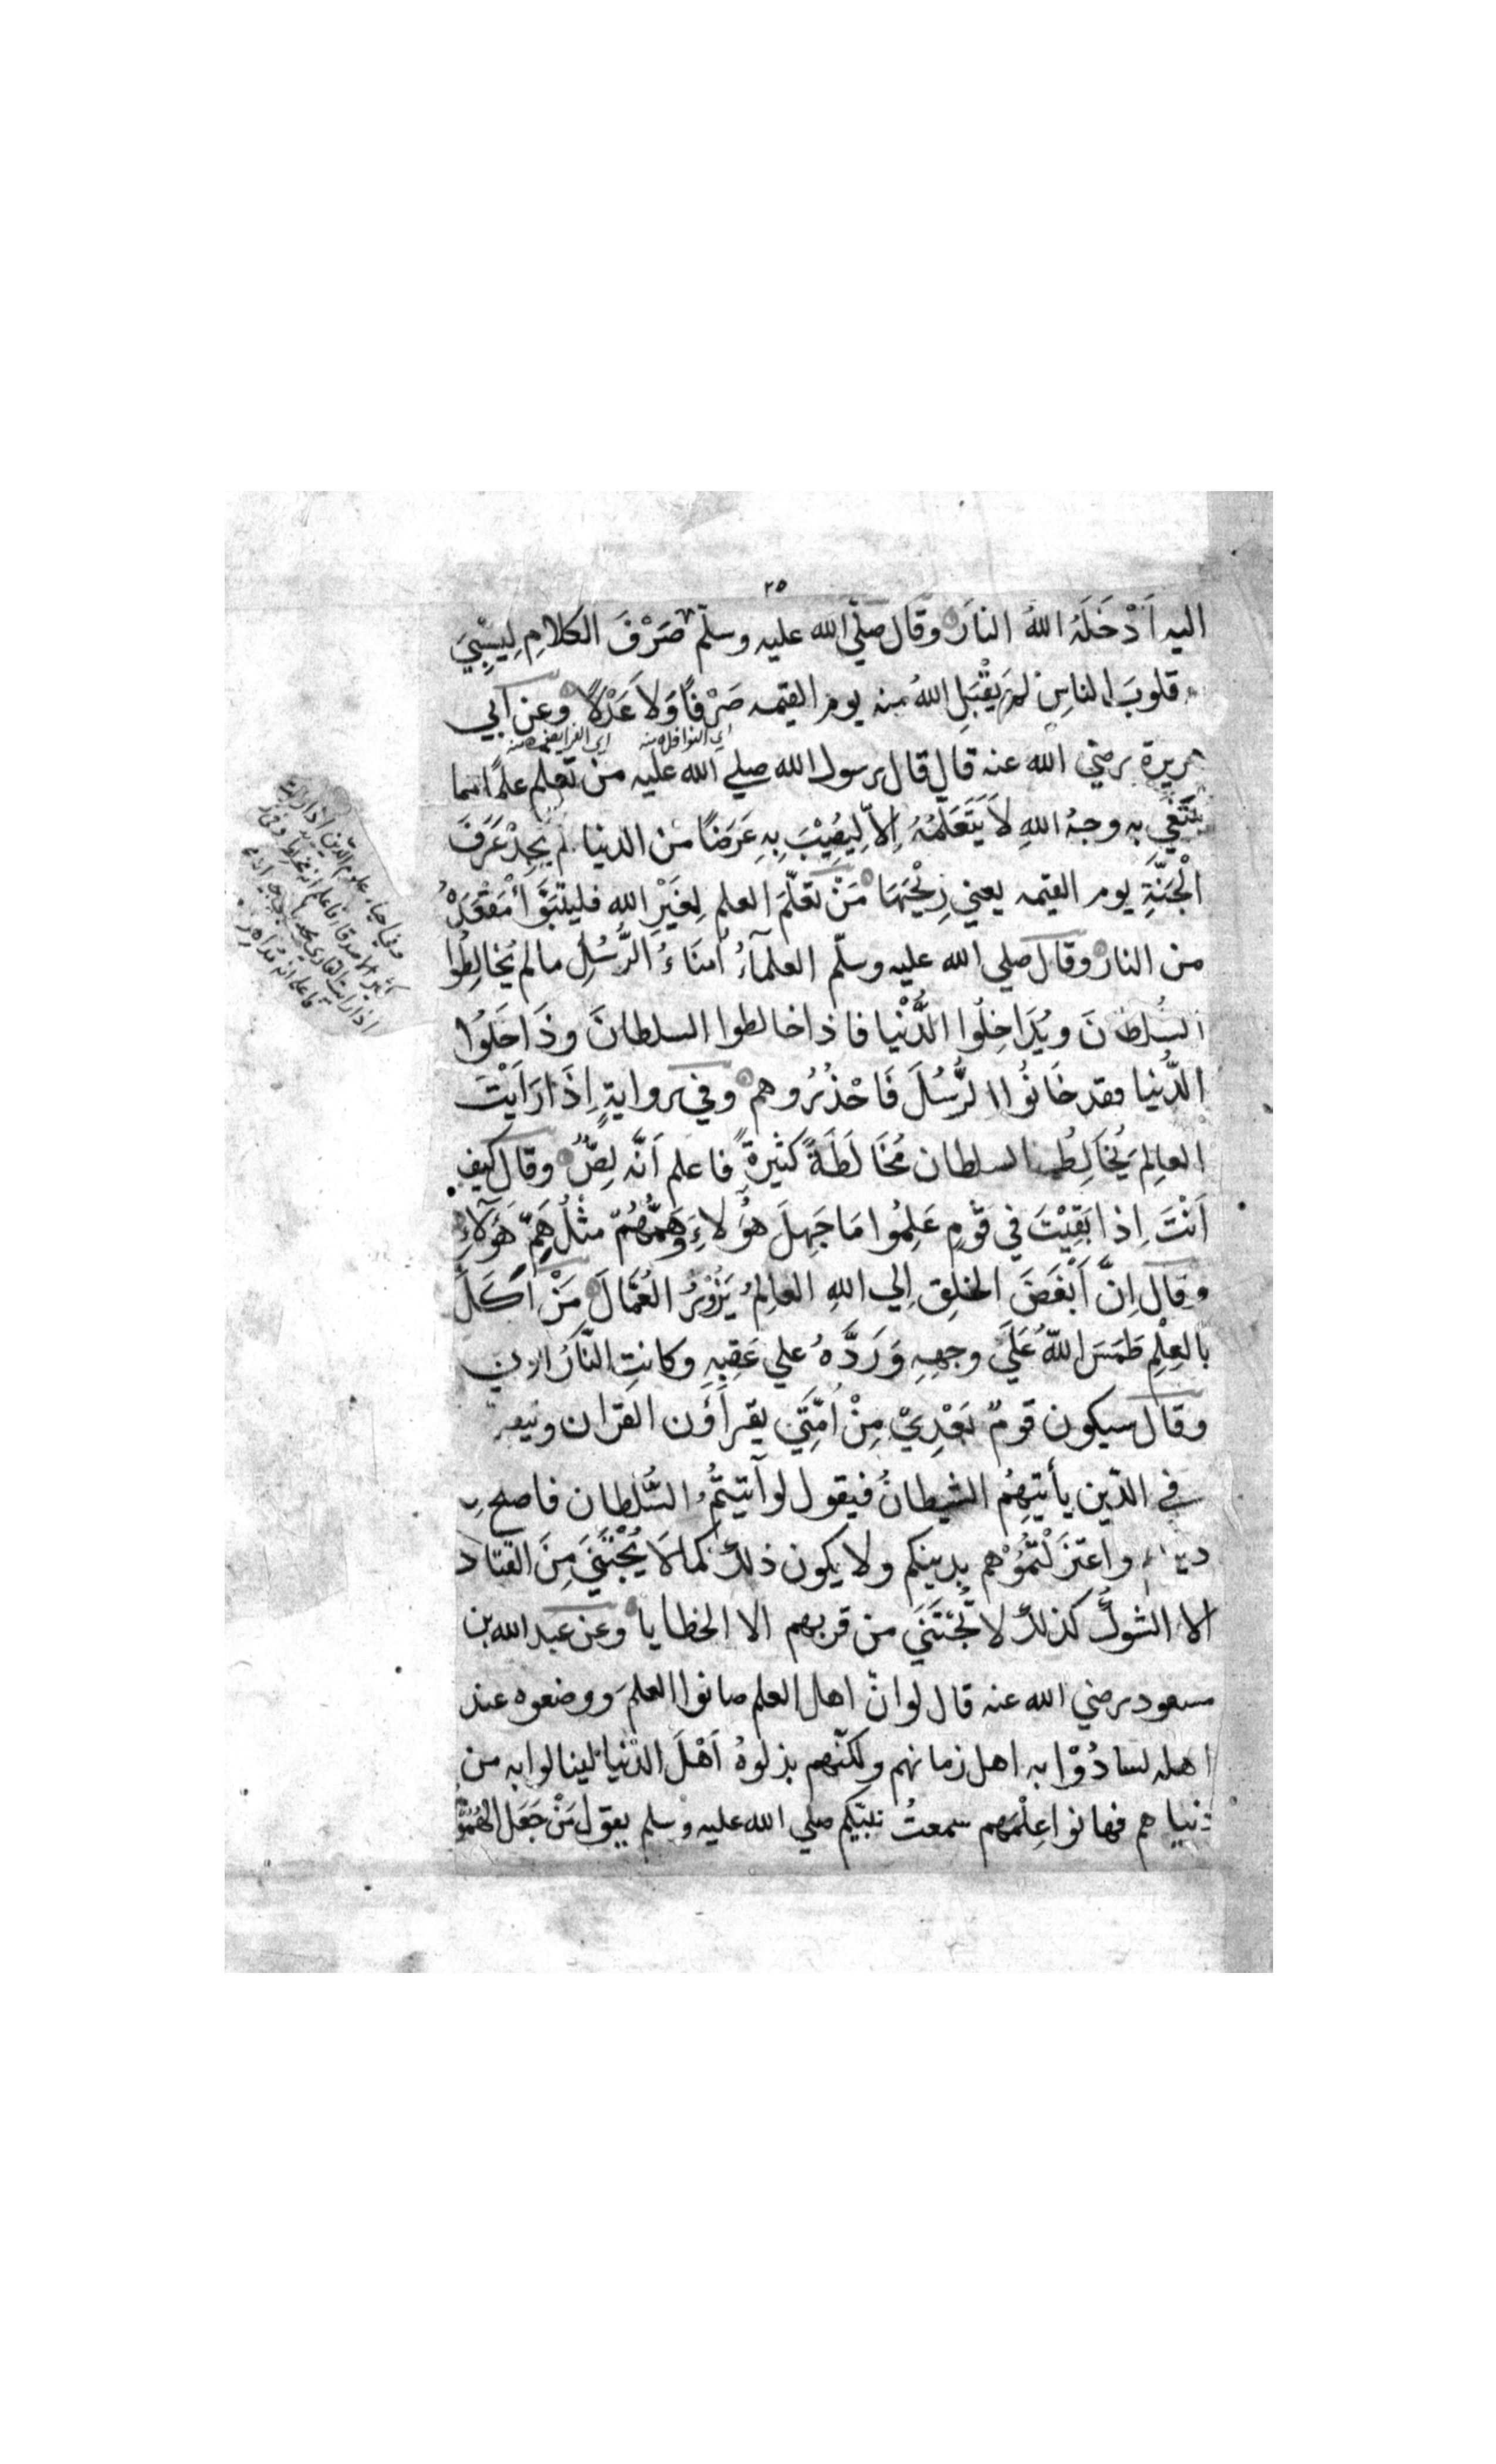 ٢٥
اليه اَدْخَلَهُ اللهُ النارَ وقَال صلّي الله عليه وسلّم صَرْفَ الكلامِ لِيَسْبِيَ
قلوبَ الناسِ لم يَقْبَلِ اللهُ منه يوم القيمه صَرْفًا وَلاَ عَدْلاً وعن ابي
اي النوافل منه اي الفرايض منه
هريرة رضي الله عنه قال قال رسول الله صلي الله عليه من تعلم علمًا مما
يبتغي به وجهُ اللهِ لاَ يَتَعَلَّمُهُ اِلاَّ لِيُصِيْبَ بِهِ عَرَضًا من الدنيا لم يَجِدْ عَرَفَ
الْجَنَّةِ يوم القيمه يعني رِيْحَهَا مَنْ تَعَلَّمَ العلم لِغَيْرِ الله فليتبَوَّأْ مَقْعَدَهُ
من النار وقال صلي الله عليه وسلّم العلمآءُ اُمنَاءُ الرُّسُلِ مالم يُخَالِطُوا
السُلطَانَ ويُدَاخِلُوا الدُّنْيا فاذا خالطوا السلطانَ وَدَاخَلُوا
الدُّنيا فقد خَانُوا الرُّسُلَ فَاحْذَرُوهم وفي رواية اِذَا رَاَيْتَ
العالِمَ يُخَالِطُ السلطان مُخَالَطَةً كثيرةً فاعلم اَنَّه لِصٌّ وقال كيف
اَنْتَ اِذا بَقِيْتَ في قَوْمٍ عَلِمُوا مَا جَهِلَ هؤُلاءِ وَهَمُّهُمْ مثْلُ هَمِّ هَؤلاءِ
وقال اِنَّ اَبْغَضَ الخلق اِلي اللهِ العالِمُ يَزُوْرُ العُمَّالَ مَنْ اَكَلَ
بالعِلْمِ طَمَسَ اللهُ عَلَيَ وجهِهِ وَرَدَّهُ علي عَقِبِهِ وكانتِ النَّارُ
وقال سيكون قومٌ بَعْدِيْ مِنْ اُمَّتِي يقرأون القرْان
في الدّين يأتيهِمُ الشيطانُ فيقول لو آتيتُمُ السُّلطان فاصلح
واعتزَلْتمُوْهم بدينكم ولا يكون ذلك كما لاَ يُجْتَنَي مِنَ القتاد
الا الشَّوكُ كذلك لا يُجْتَنَي من قربهم الا الخطايا وعن عبد الله بن
مسعود رضي الله عنه قال لو انّ اهل العلم صانوا العلمَ ووضعوه عند
اهله لسادُوْا به اهل زمانهم ولكنّهم بذلوهُ اَهْلَ الدّنيا لينالوا به من
دنياهم فهانوا عليهم سمعتُ نبيّكم صلي الله عليه وسلم يقول مَنْ جَعَلَ الهُمُوْ
وفي احياء علوم الدين اذا رايت